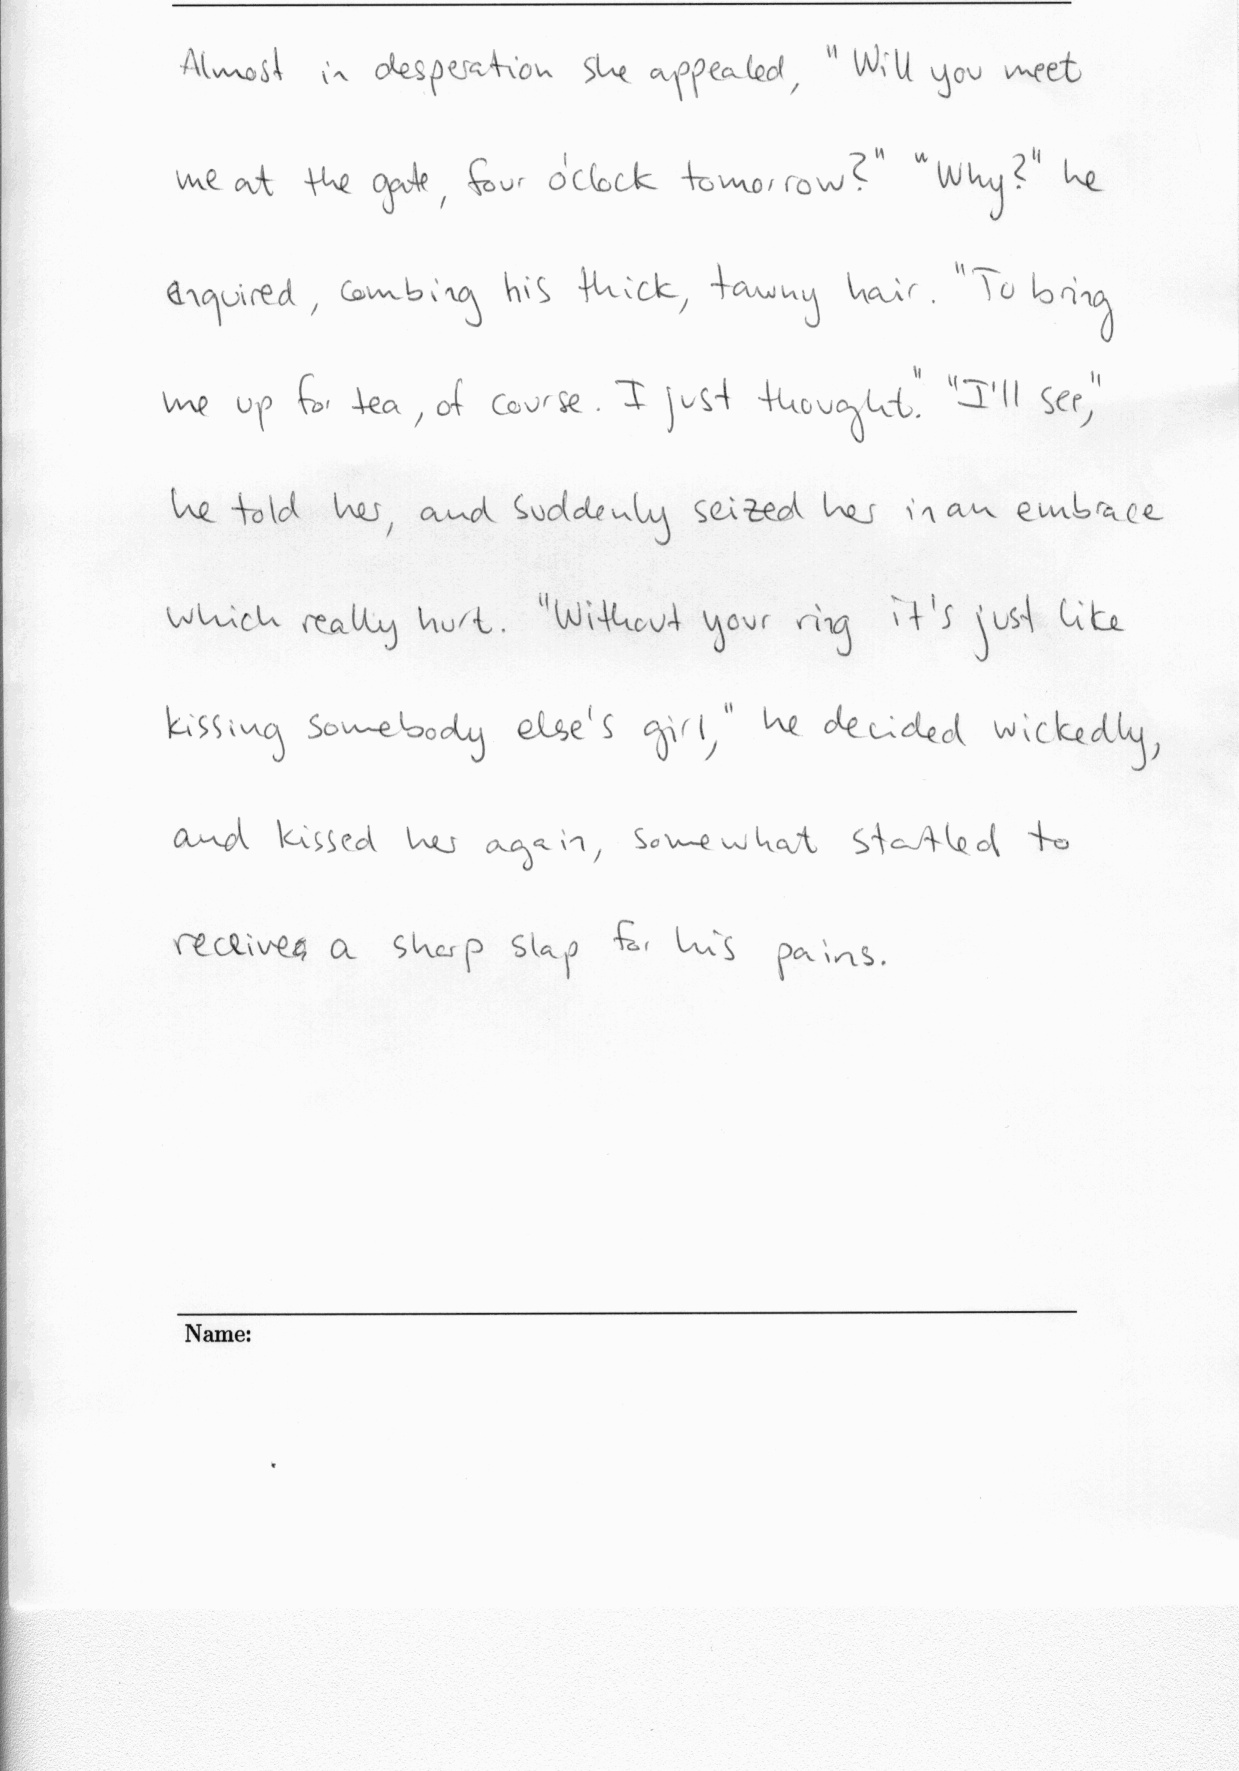 Almost in desperation she appealed, "Will you meet
me at the gate, four o'clock tomorrow?" "Why?" he
enquired, combing his thick, tawny hair. "To bring
me up for tea, of course. I just thought." "I'll see,"
he told her, and suddenly seized her in an embrace
which really hurt. "Without your ring it's just like
kissing somebody else's girl," he decided wickedly,
and kissed her again, somewhat startled to
receive a sharp slap for his pains.
Name: